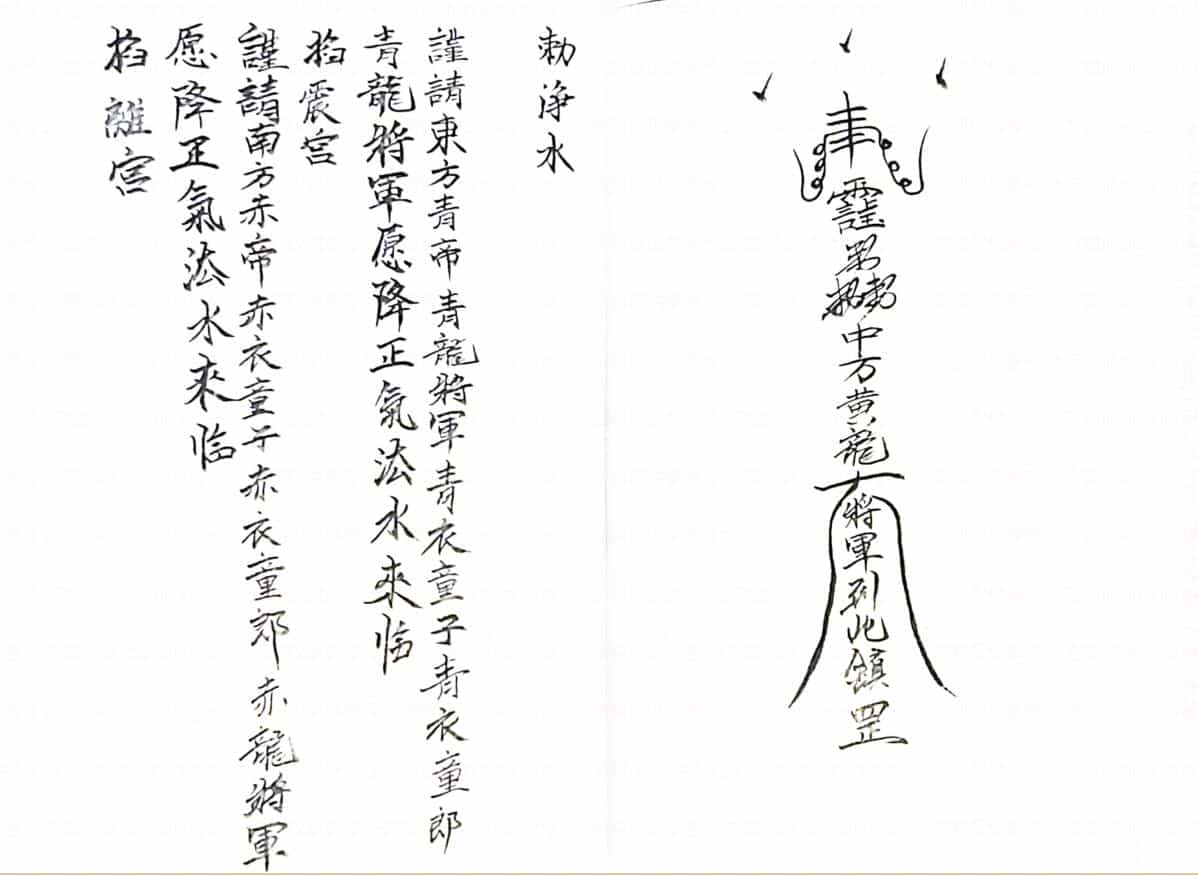 中方黄龍將軍到此鎮罡
勅淨水
謹請東方青帝青龍將軍青衣童子青衣童郎
青龍將軍愿降正氣法水來临
掐震宫
謹請南方赤帝赤衣童子赤衣童郎赤龍將軍
愿降正氣法水來临
掐離宫